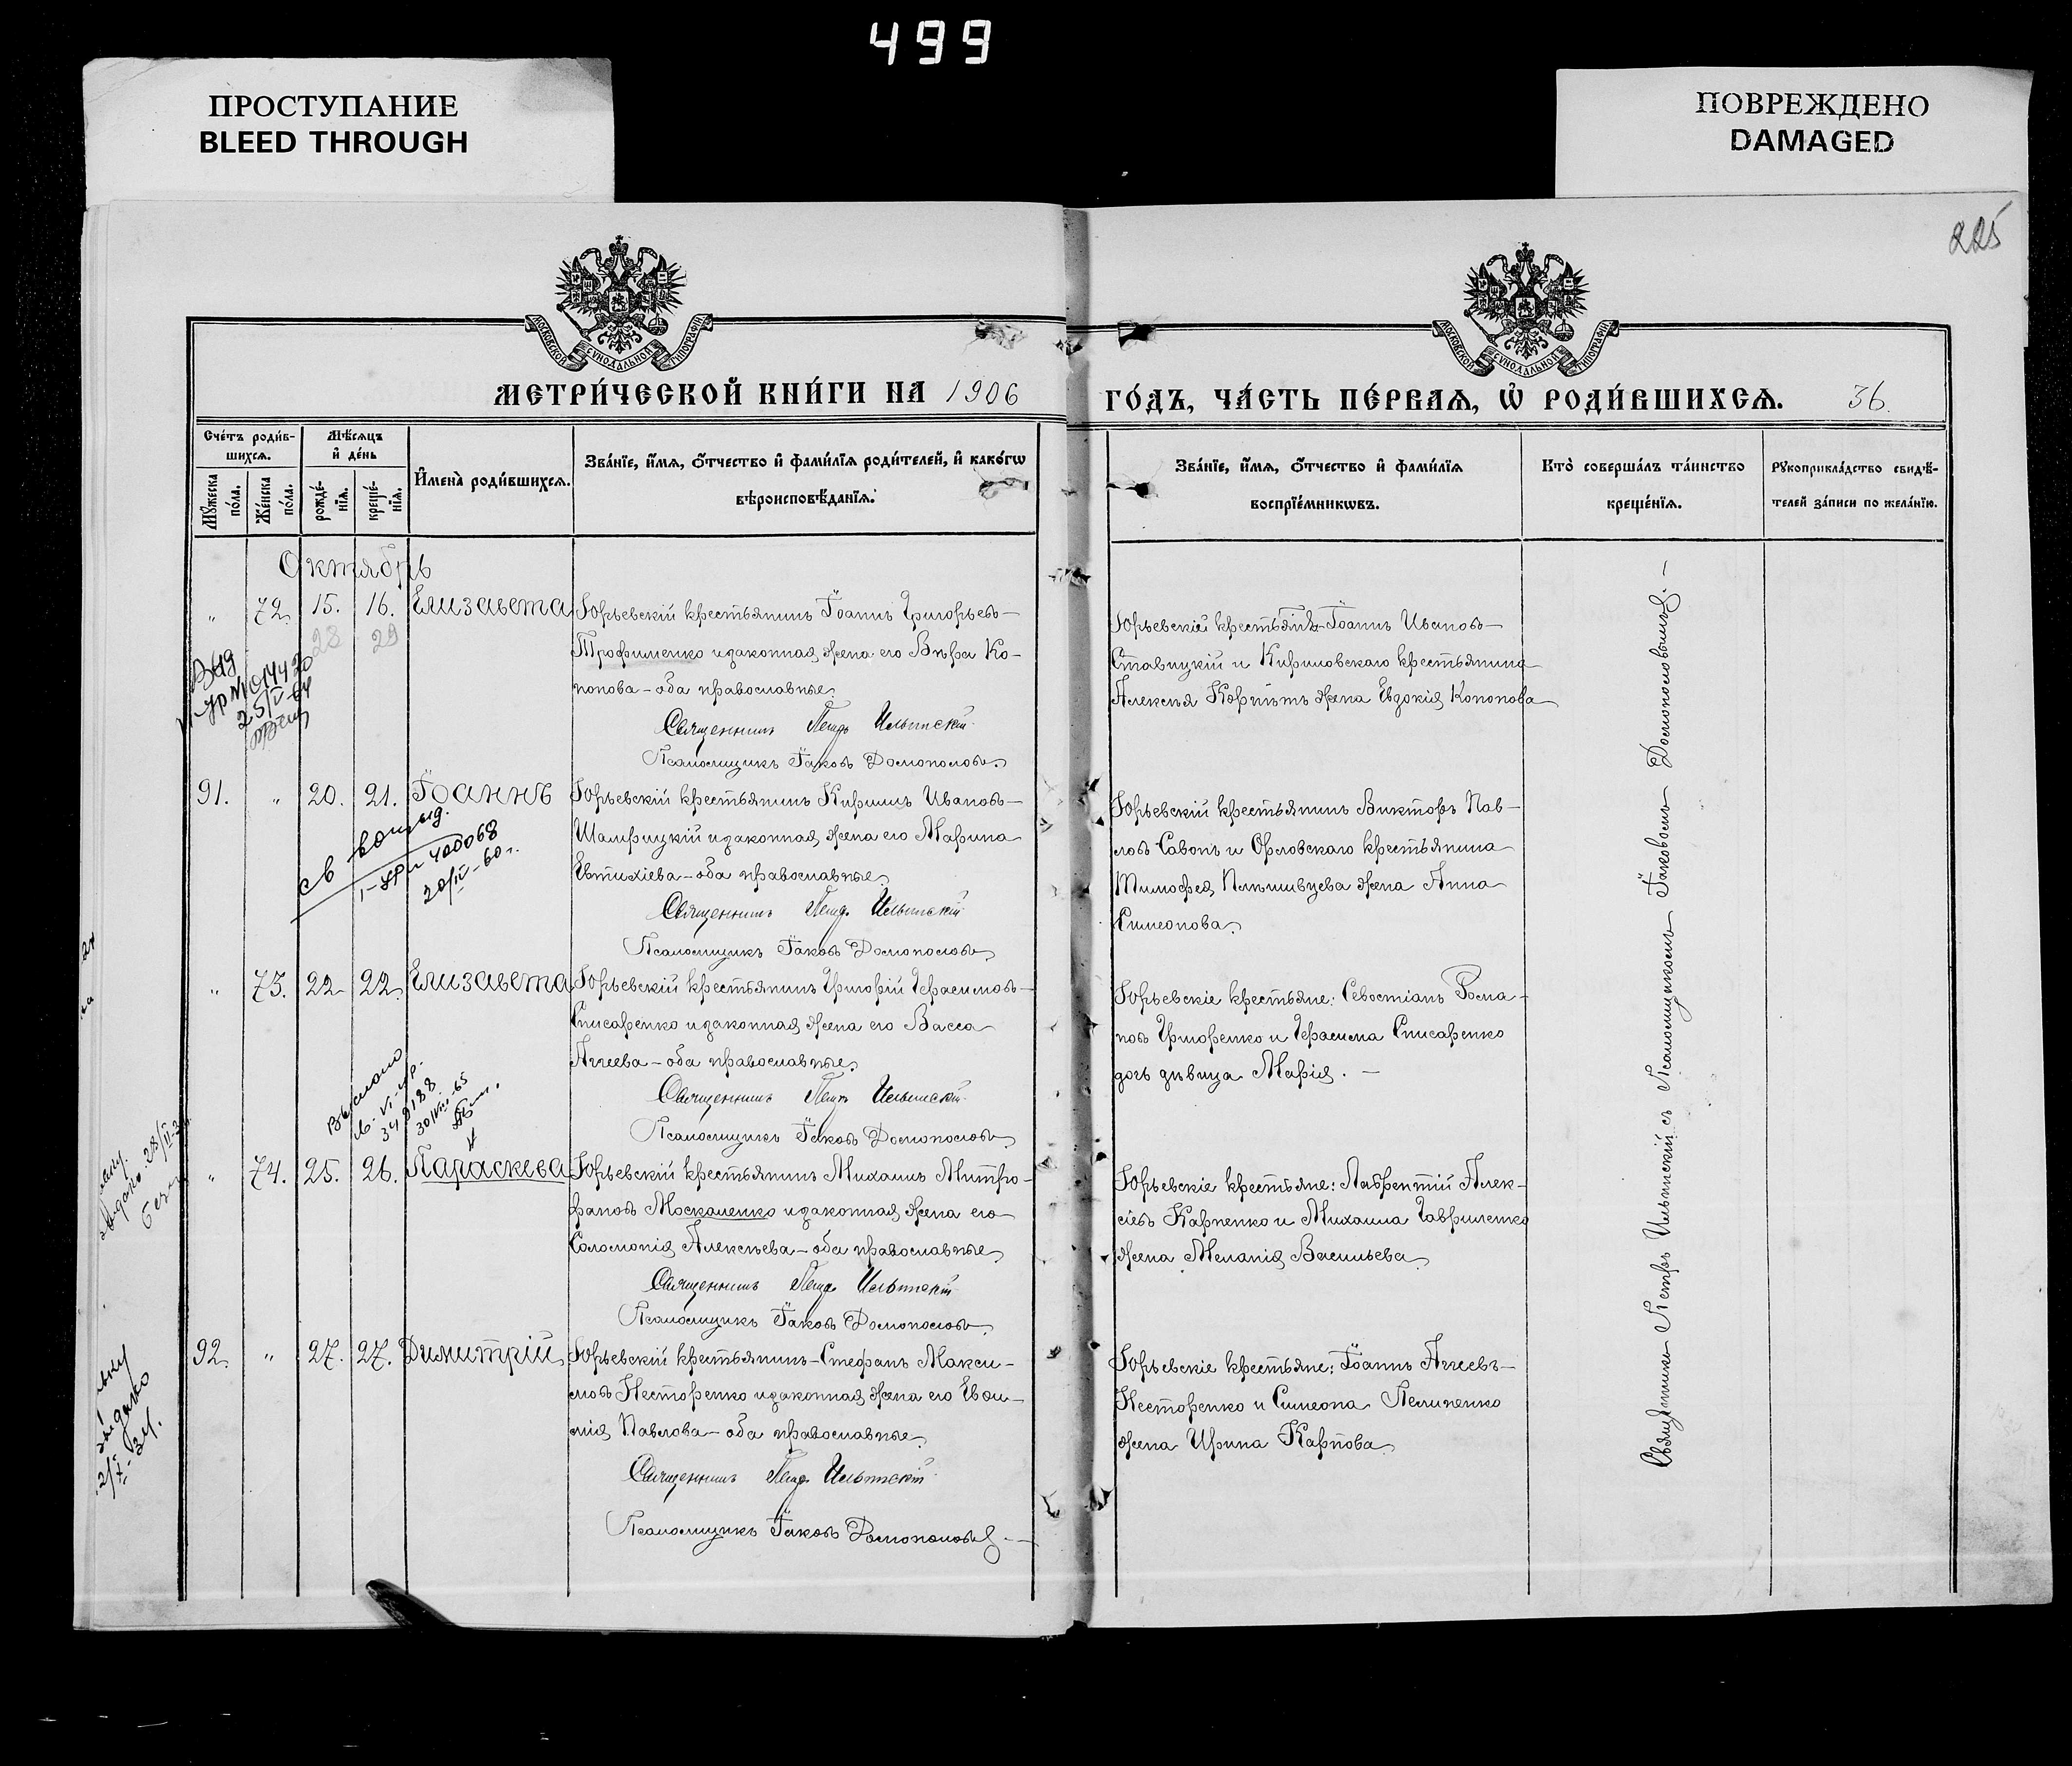 499
ПРОСТУПАНИЕ
BLEED THROUGH
ПОВРЕЖДЕНО
DAMAGED
225
МОСКОВСКОЙ СѴНОДАЛЬНОЙ ТИПОГРАФІИ
МОСКОВСКОЙ СѴНОДАЛЬНОЙ ТИПОГРАФІИ
МЕТРИ́ЧЕСКОЙ КНИ́ГИ НА 1906
ГО́ДЪ, ЧА́СТЬ ПЕ́РВАЯ, Ѡ РОДИ́ВШИХСЯ. 36.
Сче́тъ роди́в-
шихся.
Мꙋ́жеска по́ла.
Же́нска по́ла.
Мѣ́сяцъ и де́нь
рожде́-
нїя.
креще́-
нїя.
И҆мена̀ роди́вшихся.
Зва́нїе, и҆́мя, ѻ҆́тчество и҆ фами́лїя роди́телей, и҆ како́гѡ
вѣроисповѣ́данїя.
Зва́нїе, и҆́мя, ѻ҆́тчество и҆ фами́лїя
воспрїе́мникѡвъ.
Кто̀ соверша́лъ та́инство
креще́нїя.
Рꙋкоприкла́дство свидѣ́-
телей за́писи по жела́нїю.
Октябрь
" 72. 15. 16. Елизавета
28 29
Юрьевскій крестьянинъ Іоаннъ Григорьевъ
Трофименко и законная жена его Вѣра Ко-
нонова – оба православные.
Священникъ Петръ Ильинскій
Псаломщикъ Іаковъ Домонослов
Юрьевскій крестьянинъ Іоаннъ Ивановъ
Ставицкій и Кириловскаго крестьянина
Алексѣя жена Евдокія Кононова
25/IV-64
91. " 20. 21. Іоаннъ
Юрьевскій крестьянинъ Кириллъ Ивановъ
Шамрицкій и законная жена его Марина
Евтихіева – оба православные.
Священникъ Петръ Ильинскій
Псаломщикъ Іаковъ Домонослов
Юрьевскій крестьянинъ Викторъ Пав-
ловъ Савонъ и Орловскаго крестьянина
Тимофея жена Анна
Симеонова.
св
400068
20/IV-60 г.
" 73. 22 22. Елизавета
Юрьевскій крестьянинъ Григорій Герасимовъ
Списаренко и законная жена его Васса
Аггеева – оба православные.
Священникъ Петръ Ильинскій
Псаломщикъ Іаковъ Домонослов
Юрьевскіе крестьяне: Севостіанъ Рома-
новъ Григоренко и Герасима Списаренко
дочь дѣвица Марія. –
Выслано
св. VI-
349188
30/VIII-65
" 74. 25. 26. Параскева
Юрьевскій крестьянинъ Михаилъ Митро-
фановъ Москаленко и законная жена его
Соломонія Алексѣева – оба православные
Священникъ Петръ Ильинскій
Псаломщикъ Іаковъ Домонослов
Юрьевскіе крестьяне: Лаврентій Алек-
сіевъ Карпенко и Михаила Гавриленко
жена Меланія Васильева
92. " 27. 27. Димитрій
Юрьевскій крестьянинъ Стефанъ Макси-
мовъ Несторенко и законная жена его Евѳи-
мія Павлова – оба православные.
Священникъ Петръ Ильинскій
Псаломщикъ Іаковъ Домонослов
Юрьевскіе крестьяне: Іоаннъ Аггеевъ
Несторенко и Симеона Пелипенко
жена Ирина Карпова.
Священникъ Петръ Ильинскій съ Псаломщикомъ Іаковомъ Домонословомъ. –